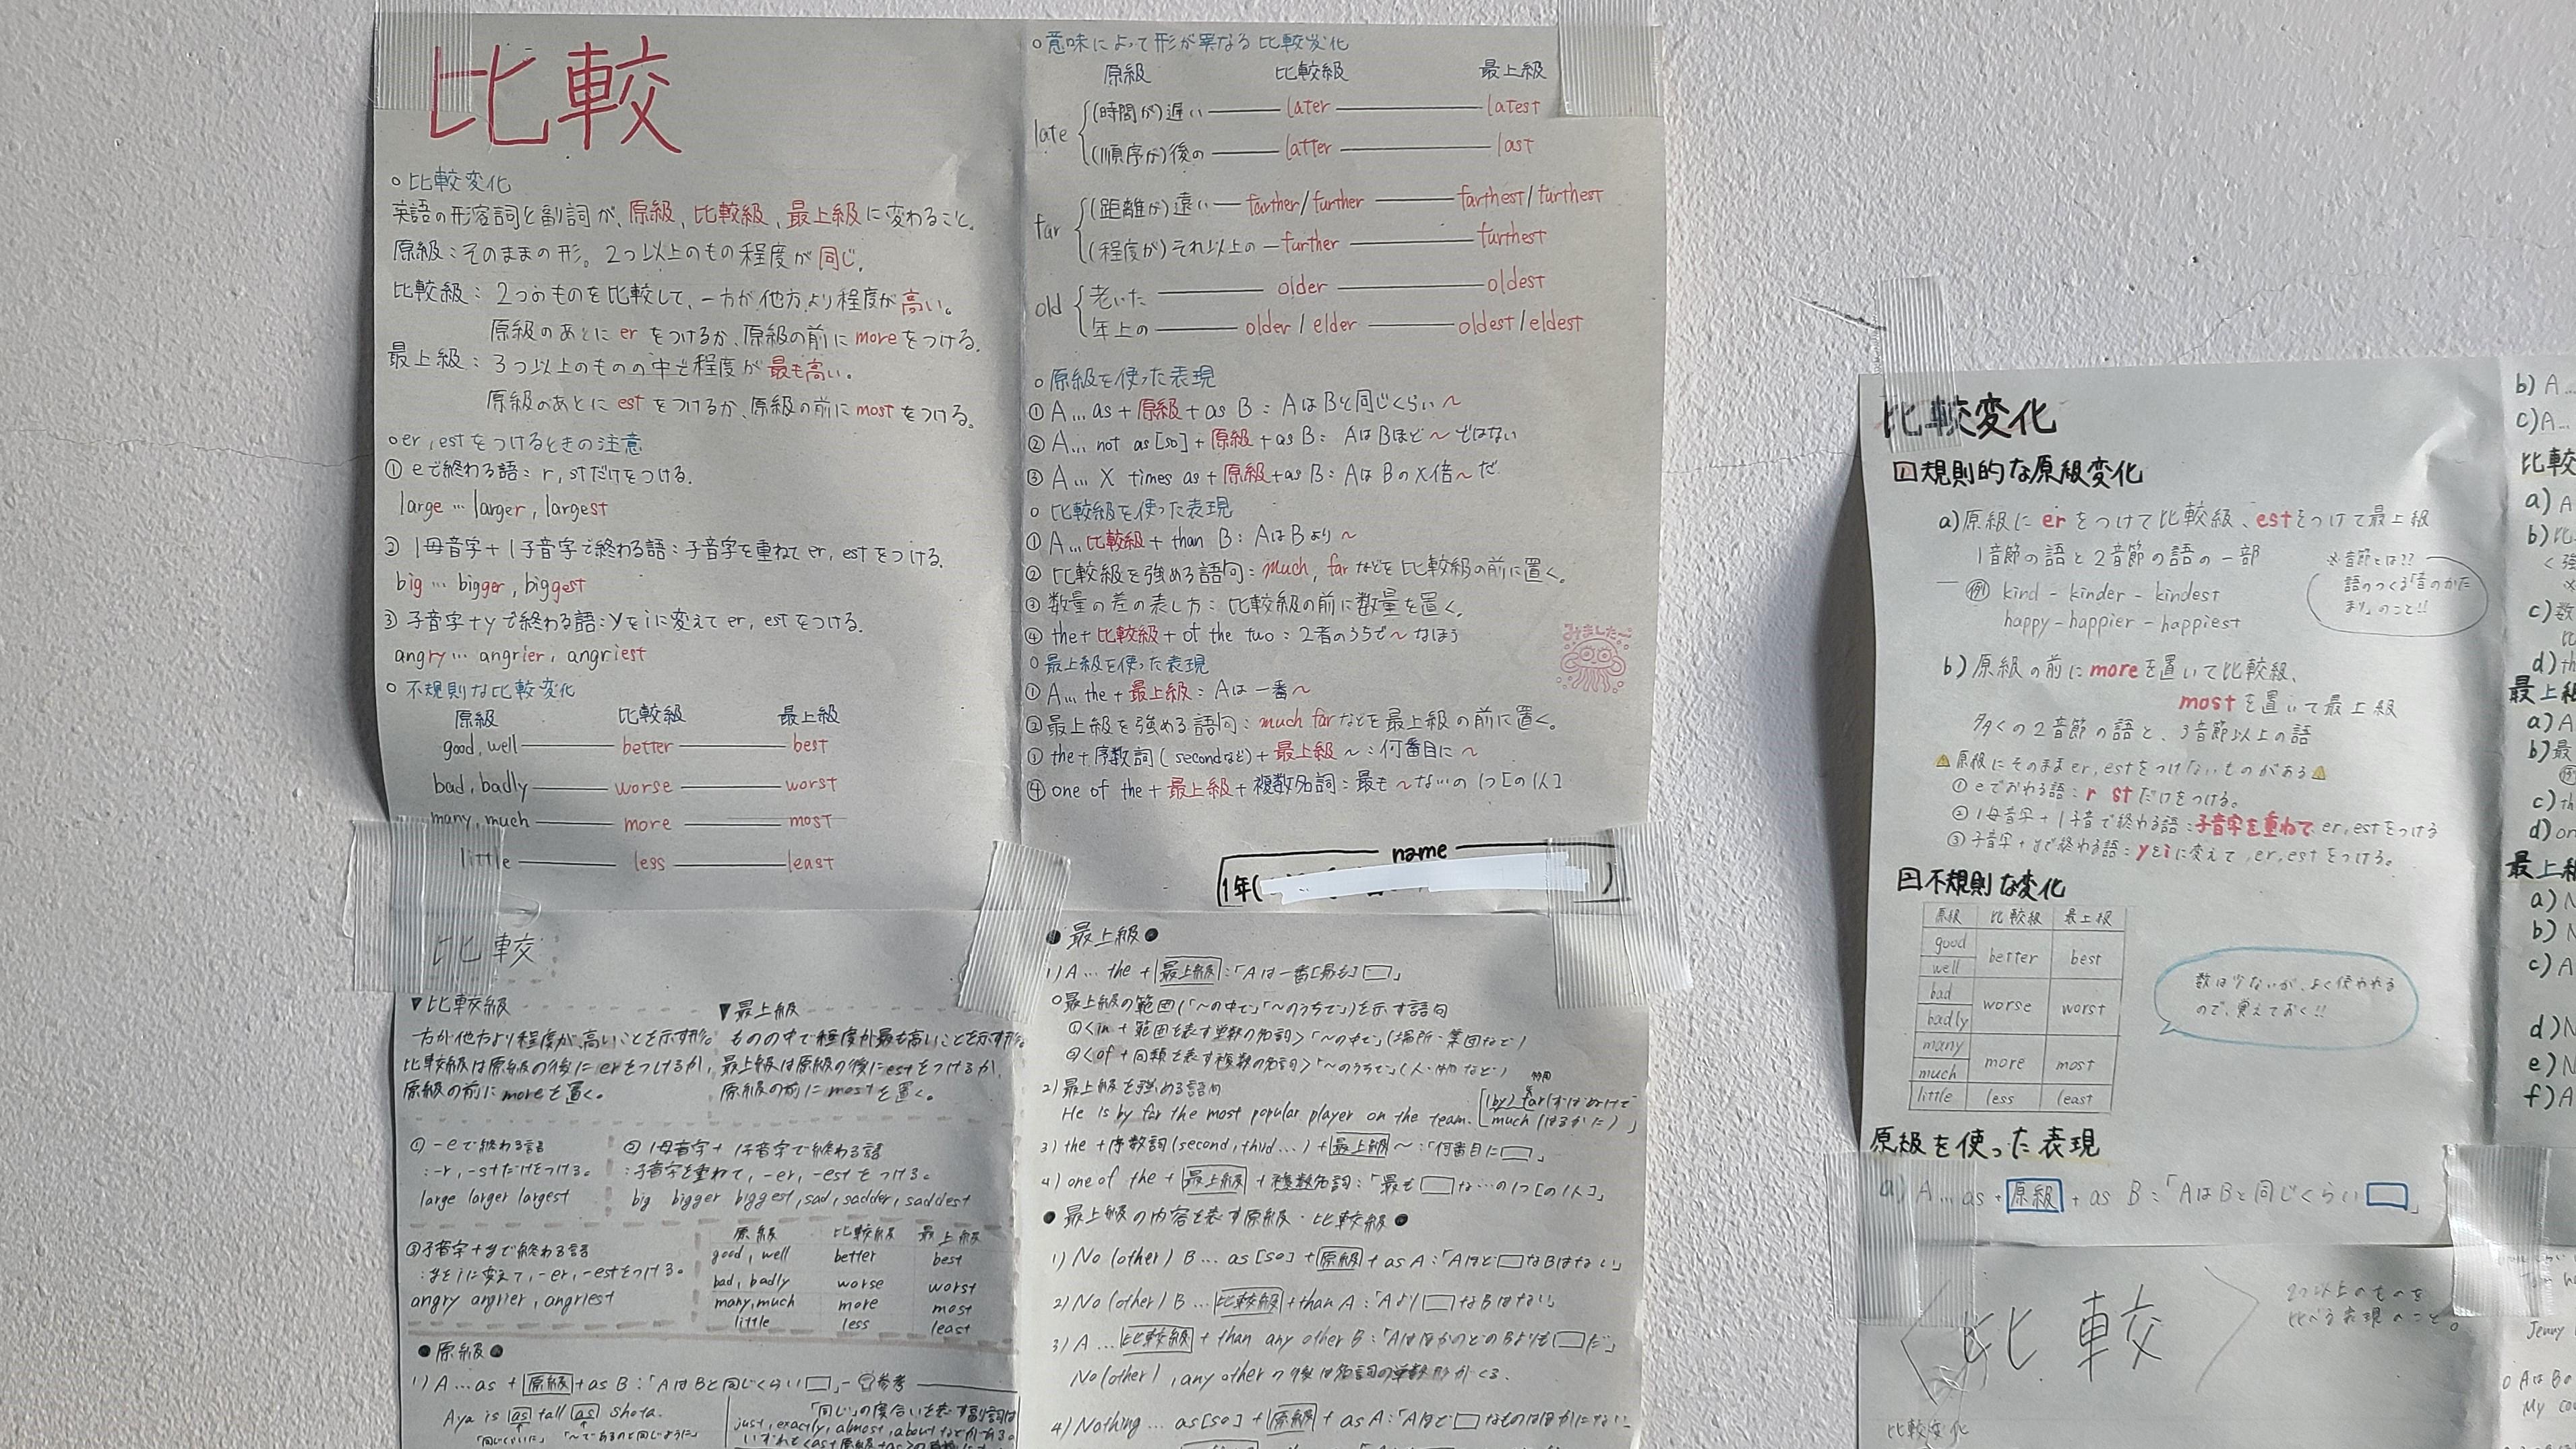 比較
○ 比較変化
英語の形容詞と副詞が、原級、比較級、最上級に変わること。
原級：そのままの形。2つ以上のもの程度が同じ。
比較級：2つのものを比較して、一方が他方より程度が高い。
原級のあとに er をつけるか、原級の前に more をつける。
最上級：3つ以上のものの中で程度が最も高い。
原級のあとに est をつけるか、原級の前に most をつける。
○er,estをつけるときの注意
① eで終わる語：r,stだけをつける。
large … larger, largest
② 1母音字+1子音字で終わる語：子音字を重ねてer,estをつける。
big … bigger, biggest
③ 子音字+yで終わる語：yをiに変えてer,estをつける。
angry … angrier, angriest
○ 不規則な比較変化
原級 比較級 最上級
good, well better best
bad, badly worse worst
many, much more most
little less least
○意味によって形が異なる比較変化
原級 比較級 最上級
late
(時間が)遅い later latest
(順序が)後の latter last
far
(距離が)遠い farther/further farthest/furthest
(程度が)それ以上の further furthest
old
老いた older oldest
年上の older / elder oldest/eldest
○ 原級を使った表現
① A… as+原級+as B：AはBと同じくらい〜
② A… not as[so]+原級+as B：AはBほど〜ではない
③ A… X times as+原級+as B：AはBのX倍〜だ
○ 比較級を使った表現
① A…比較級+than B：AはBより〜
② 比較級を強める語句：much, farなどを比較級の前に置く。
③ 数量の差の表し方：比較級の前に数量を置く。
④ the+比較級+of the two：2者のうちで〜なほう
○ 最上級を使った表現
① A… the+最上級：Aは一番〜
②最上級を強める語句：much farなどを最上級の前に置く。
③ the+序数詞(secondなど)+最上級〜：何番目に〜
④ one of the+最上級+複数名詞：最も〜な…の1つ[の1人]
みました
name
1年( )
比較
▼比較級
一方が他方より程度が、高いことを示す形。
比較級は原級の後にerをつけるか、
原級の前にmoreを置く。
▼最上級
ものの中で程度が最も高いことを示す形。
最上級は原級の後にestをつけるか、
原級の前にmostを置く。
① -eで終わる語
：-r,-stだけをつける。
large larger largest
② 1母音字+1子音字で終わる語
：子音字を重ねて、-er,-estをつける。
big bigger biggest, sad, sadder, saddest
③子音字+yで終わる語
：yをiに変えて,-er,-estをつける。
angry angrier, angriest
原級 比較級 最上級
good, well better best
bad, badly worse worst
many, much more most
little less least
●原級●
1) A…as +原級+as B：「AはBと同じくらい□」 参考
Aya is as tall as Shota.
「同じくらいに」 「〜であるのと同じように」
「同じ」の度合いを表す副詞は
just, exactly, almost, aboutなどがある。
●最上級●
1) A… the +最上級：「Aは一番[最も]□」
○最上級の範囲(「〜の中で」「〜のうちで」)を示す語句
①<in + 範囲を表す単数の名詞>「〜の中で」(場所・集団など)
②<of+同類を表す複数の名詞>「〜のうちで」(人・物など)
2) 最上級を強める語句
He is by far the most popular player on the team.
3) the +序数詞(second, third…)+最上級〜：「何番目に□」
4) one of the +最上級+複数名詞：「最も□な…の1つ[の1人]」
●最上級の内容を表す原級・比較級●
1) No (other) B… as[so] +原級+ as A：「Aほど□なBはない」
2) No (other) B …比較級+than A：「Aより□なBはない」
3) A …比較級+ than any other B：「AはほかのどのBよりも□だ」
No(other), any otherの後は名詞の単数形がくる。
4) Nothing… as[so]+原級+as A：「Aほど□なものはほかにない」
比較変化
1 規則的な原級変化
a)原級に er をつけて比較級、estをつけて最上級
1音節の語と2音節の語の一部
例 kind - kinder - kindest
happy - happier - happiest
※音節とは??
語のつくる「音のかた
まり」のこと!!
b) 原級の前にmoreを置いて比較級、
mostを置いて最上級
多くの2音節の語と、3音節以上の語
原級にそのままer,estをつけないものがある
① eでおわる語：r stだけをつける。
② 1母音字+1子音で終わる語：子音字を重ねて er,estをつける
③ 子音字+yで終わる語：yをiに変えて,er,estをつける。
二 不規則な変化
原級 比較級 最上級
good
well better best
bad
badly worse worst
many
much more most
little less least
数は少ないが、よく使われる
ので、覚えておく!!
原級を使った表現
a) A…as+原級+as B：「AはBと同じくらい□」
〈比較〉
2つ以上のものを
比べる表現のこと。
比較変化
b) A…
c)A…
比較
a) A
b)比
c)数
d)th
最上級
a) A
b)最
c)th
d)on
最上級
a) N
b) N
c) A
d) N
e) N
f) A
Jenny
○ AはBの
My cou